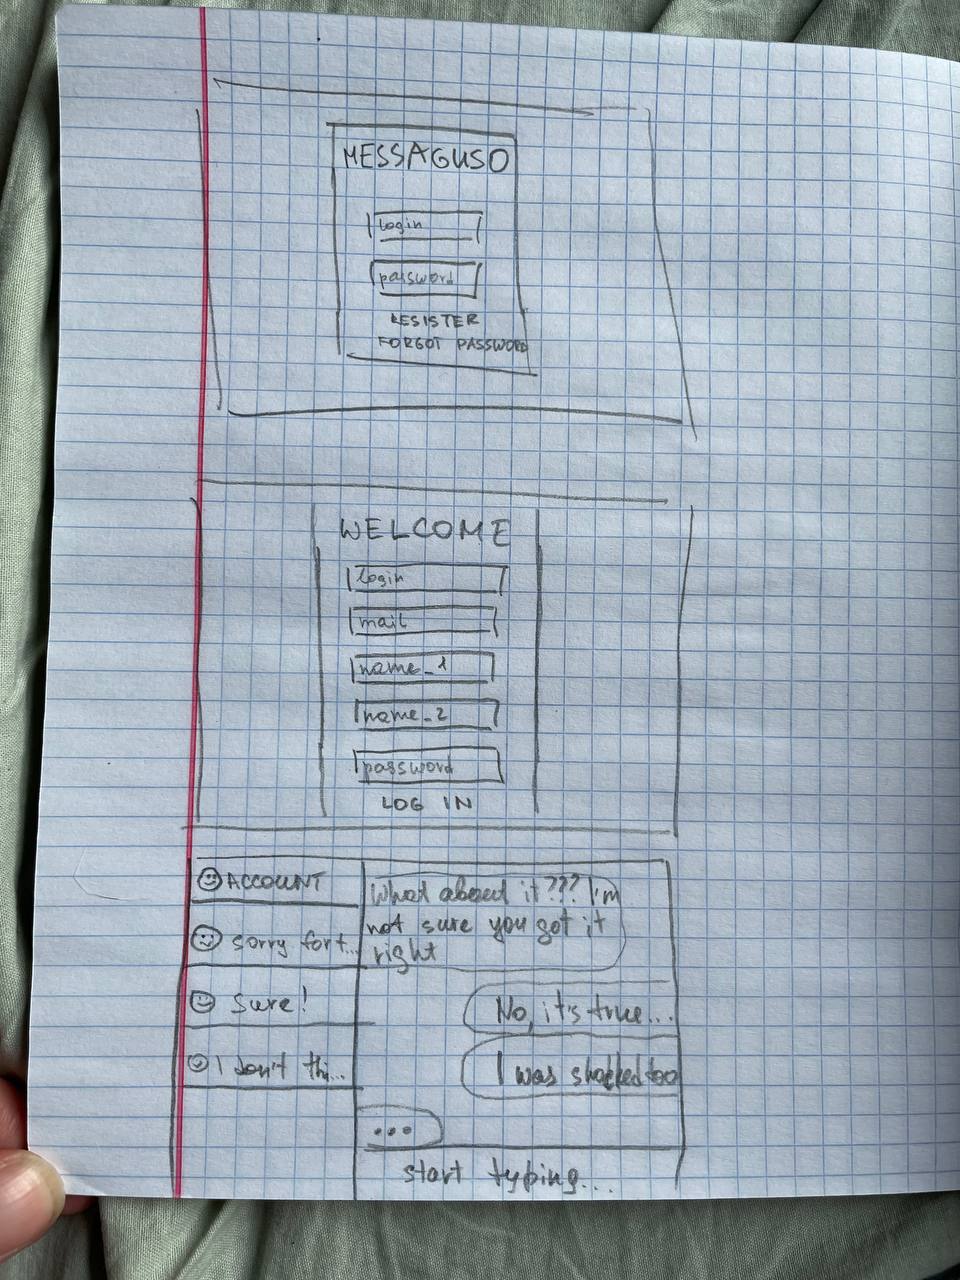 MESSAGUSO
login
password
RESISTER
FORGOT PASSWORD
WELCOME
login
mail
name_1
name_2
password
LOG IN
ACCOUNT
sorry for t...
Sure!
I don't thi...
What about it??? I'm
not sure you got it
right
No, it's true...
I was shocked too
...
start typing...